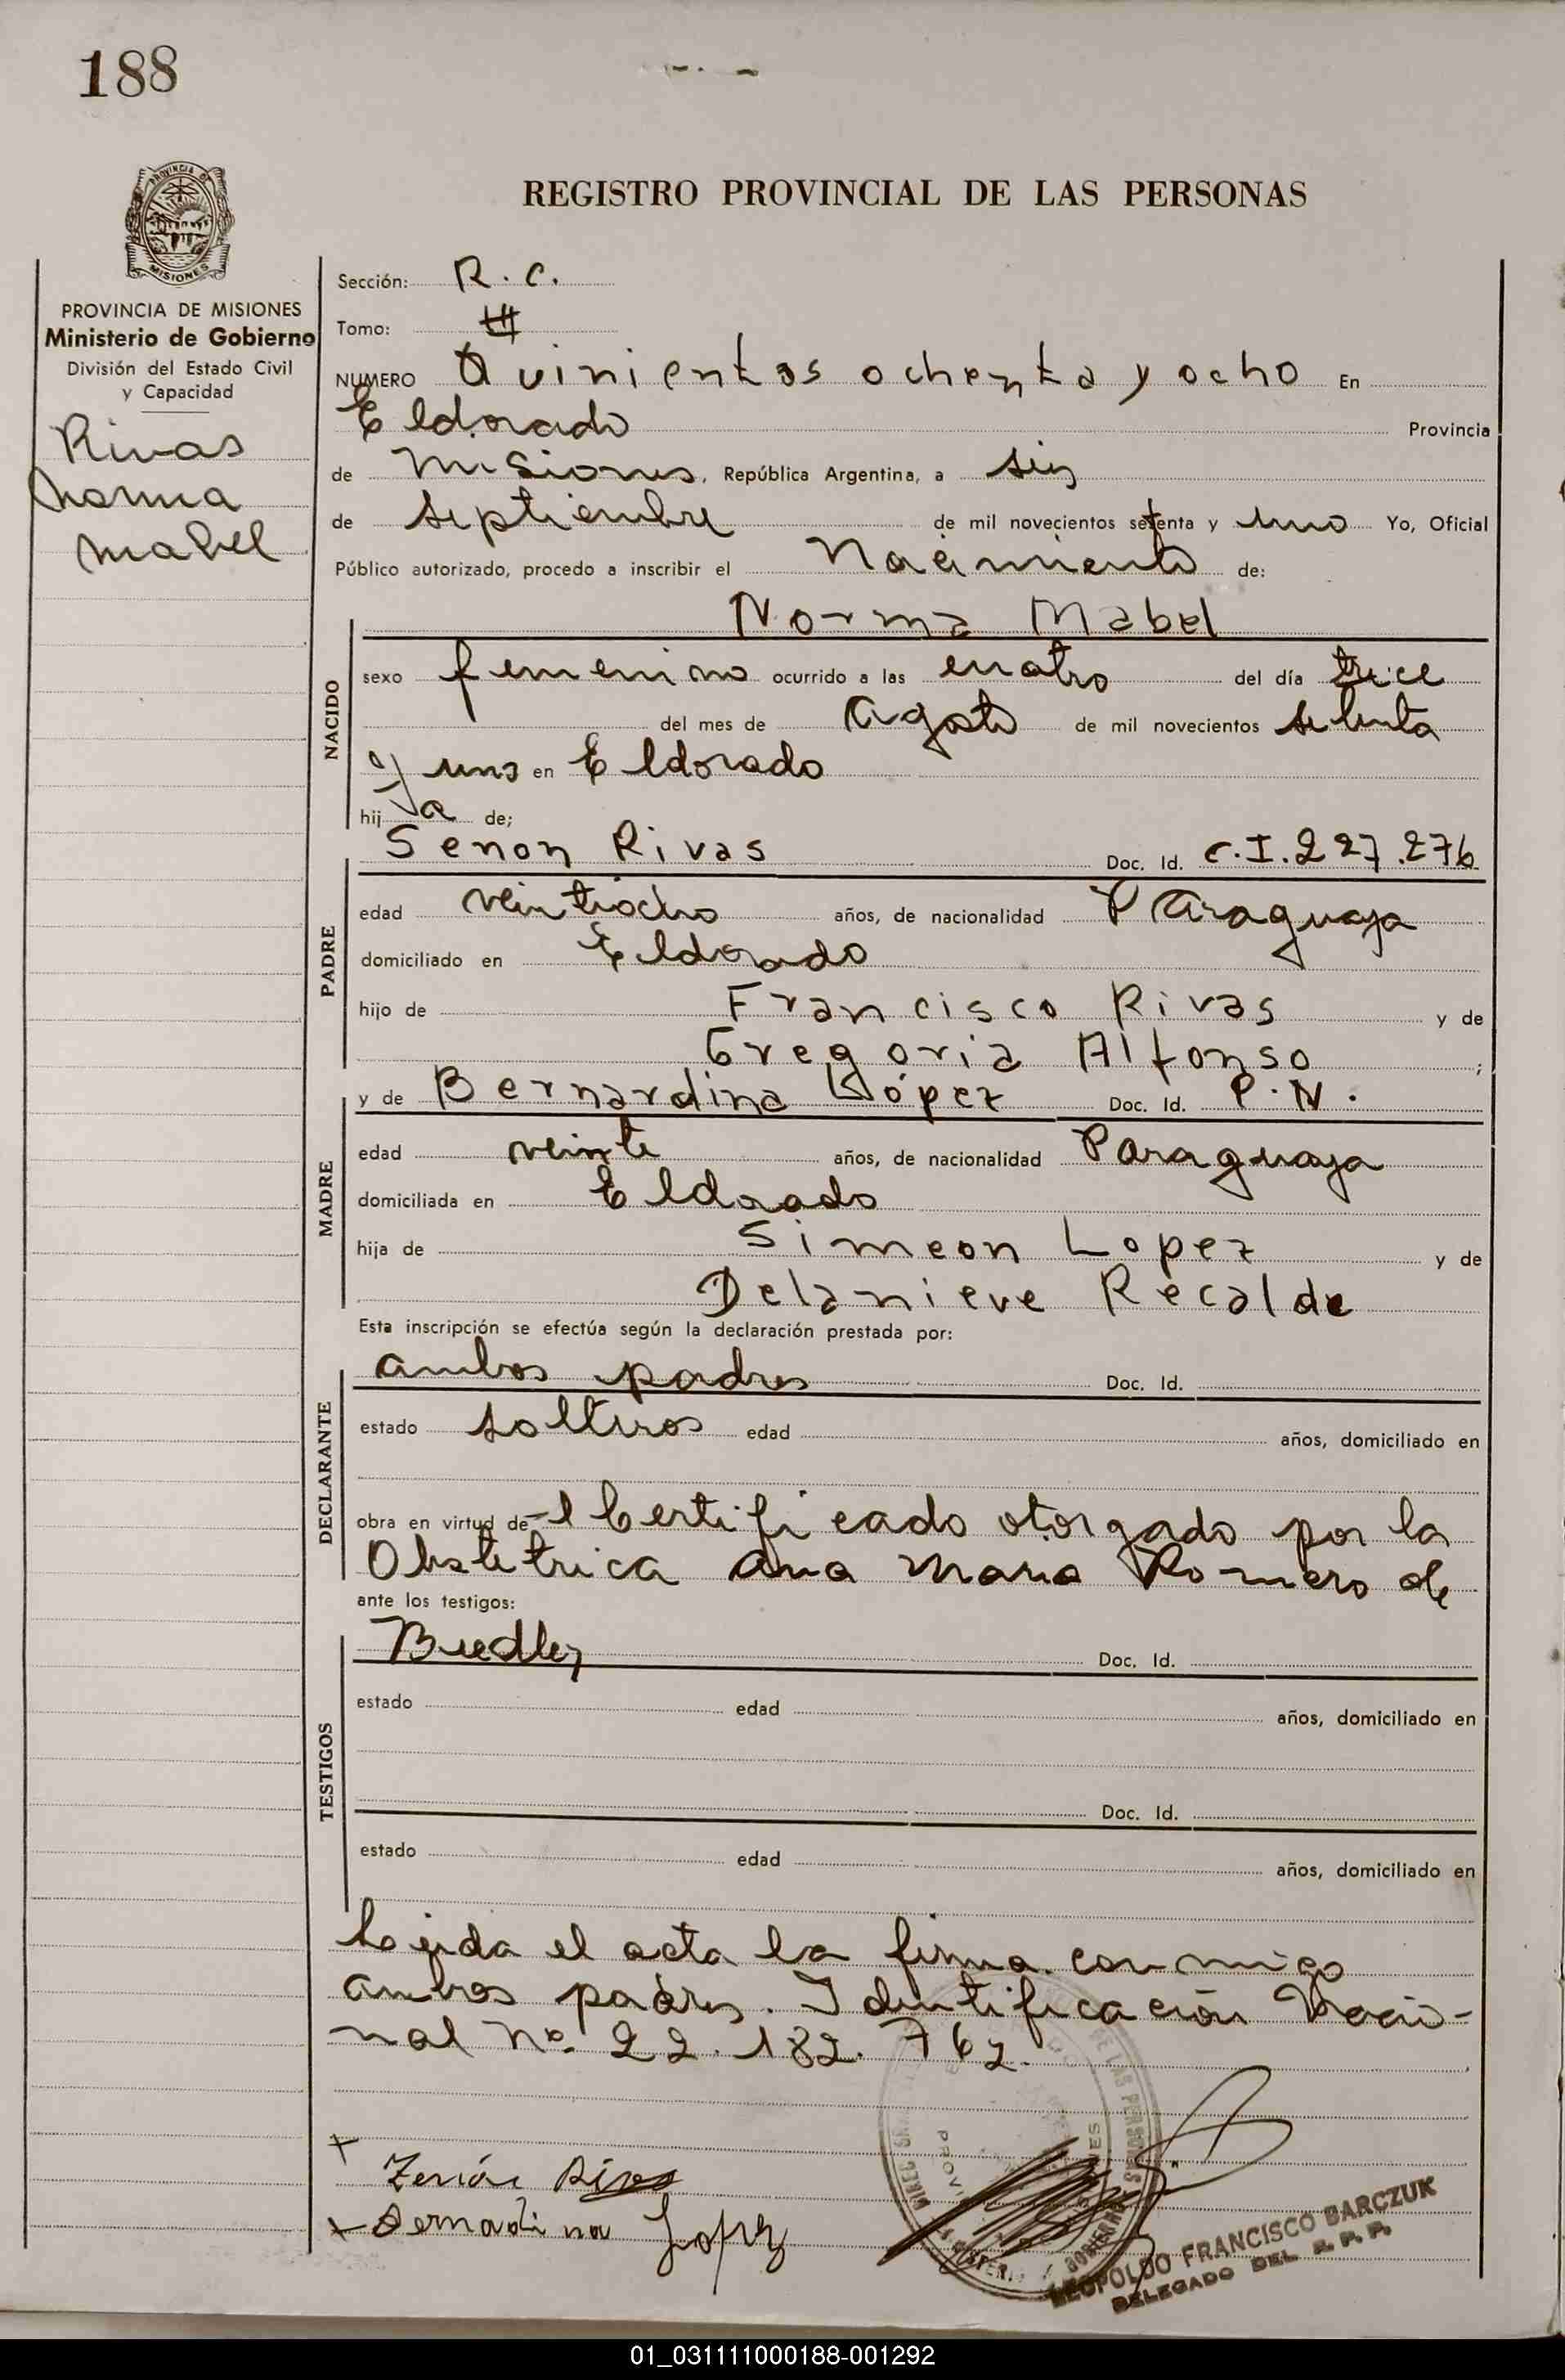 188
PROVINCIA DE
MISIONES
PROVINCIA DE MISIONES
Ministerio de Gobierno
División del Estado Civil
y Capacidad
Rivas
Norma
Mabel
REGISTRO PROVINCIAL DE LAS PERSONAS
Sección: R. C.
Tomo: III
NUMERO Quinientos ochenta y ocho En
Eldorado Provincia
de Misiones, República Argentina, a seis
de septiembre de mil novecientos setenta y uno Yo, Oficial
Público autorizado, procedo a inscribir el Nacimiento de:
Norma Mabel
NACIDO
sexo femenino ocurrido a las cuatro del día trece
del mes de Agosto de mil novecientos setenta
y uno en Eldorado
hij ja de;
PADRE
Senon Rivas Doc. Id. C.I. 227.276
edad veintiocho años, de nacionalidad Paraguaya
domiciliado en Eldorado
hijo de Francisco Rivas y de
Gregoria Alfonso ;
MADRE
y de Bernardina López Doc. Id. P.N.
edad veinte años, de nacionalidad Paraguaya
domiciliada en Eldorado
hija de Simeon Lopez y de
Delanieve Recalde
Esta inscripción se efectúa según la declaración prestada por:
DECLARANTE
ambos padres Doc. Id.
estado solteros edad años, domiciliado en
obra en virtud de -l Certificado otorgado por la
Obstetrica Ana Maria Romero de
ante los testigos:
TESTIGOS
Doc. Id.
estado edad años, domiciliado en
Doc. Id.
estado edad años, domiciliado en
Leida el acta la firma conmigo
ambos padres. Identificación Nacio-
nal Nº 22.182.762.
x Zenón Rivas
x Bernardina Lopez
LEOPOLDO FRANCISCO BARCZUK
DELEGADO DEL R. P. P.
01_031111000188-001292